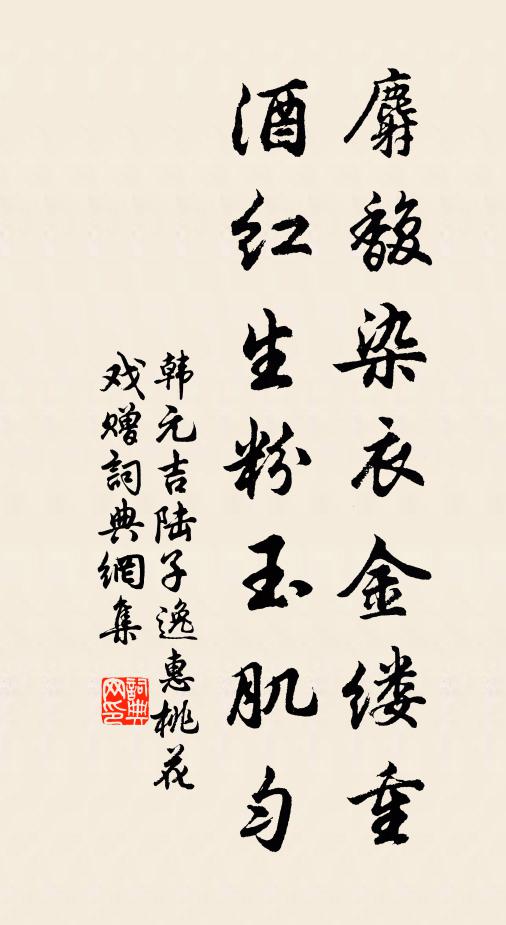 麝馥染衣金缕重
酒红生粉玉肌匀
韩元吉陆子逸惠桃花
戏赠詞典網集
詞典网印